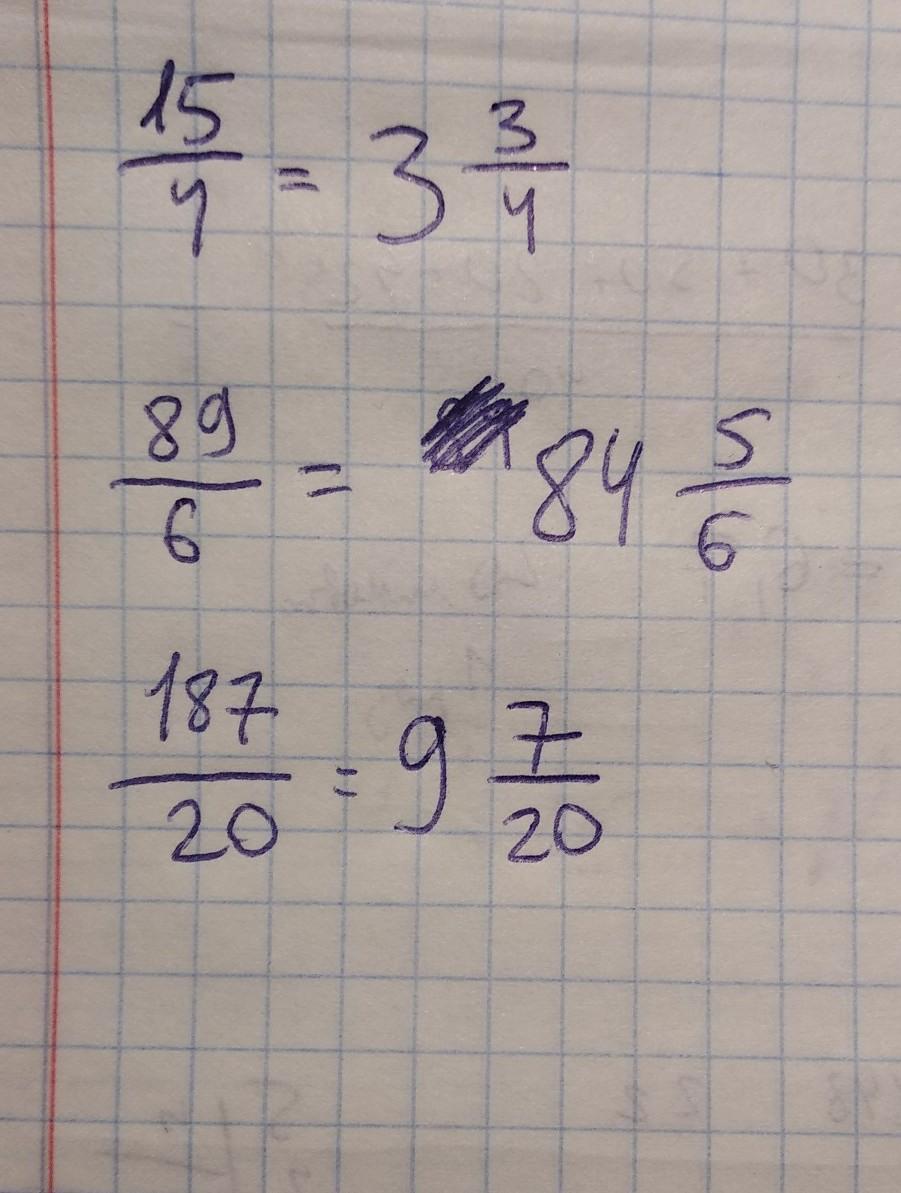 15/4 = 3 3/4
89/6 = 84 5/6
187/20 = 9 7/20